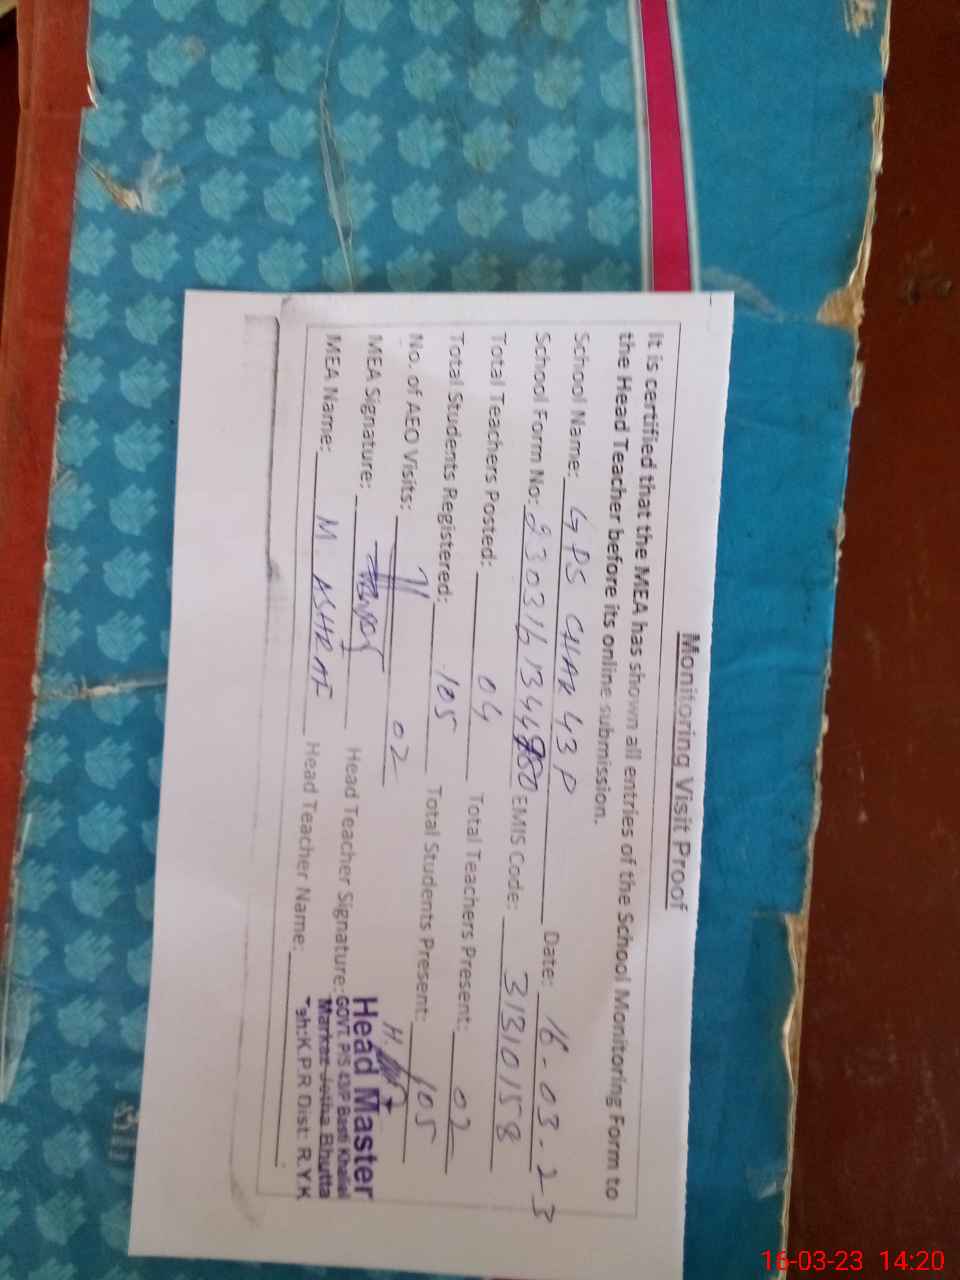 Monitoring Visit Proof
It is certified that the MEA has shown all entries of the School Monitoring Form to
the Head Teacher before its online submission.
School Name: GPS CHAK 43 P Date: 16-03-23
School Form No: EMIS Code: 31310158
Total Teachers Posted: 04 Total Teachers Present: 02
Total Students Registered: 105 Total Students Present: 105
No. of AEO Visits: 02
MEA Signature: Head Teacher Signature:
MEA Name: M. ASHRAF Head Teacher Name:
Head Master
GOVT. P/S 43/P Basti Khaliel
Markaz Jetha Bhutta
Teh: K.P.R Dist: R.Y.K
16-03-23 14:20